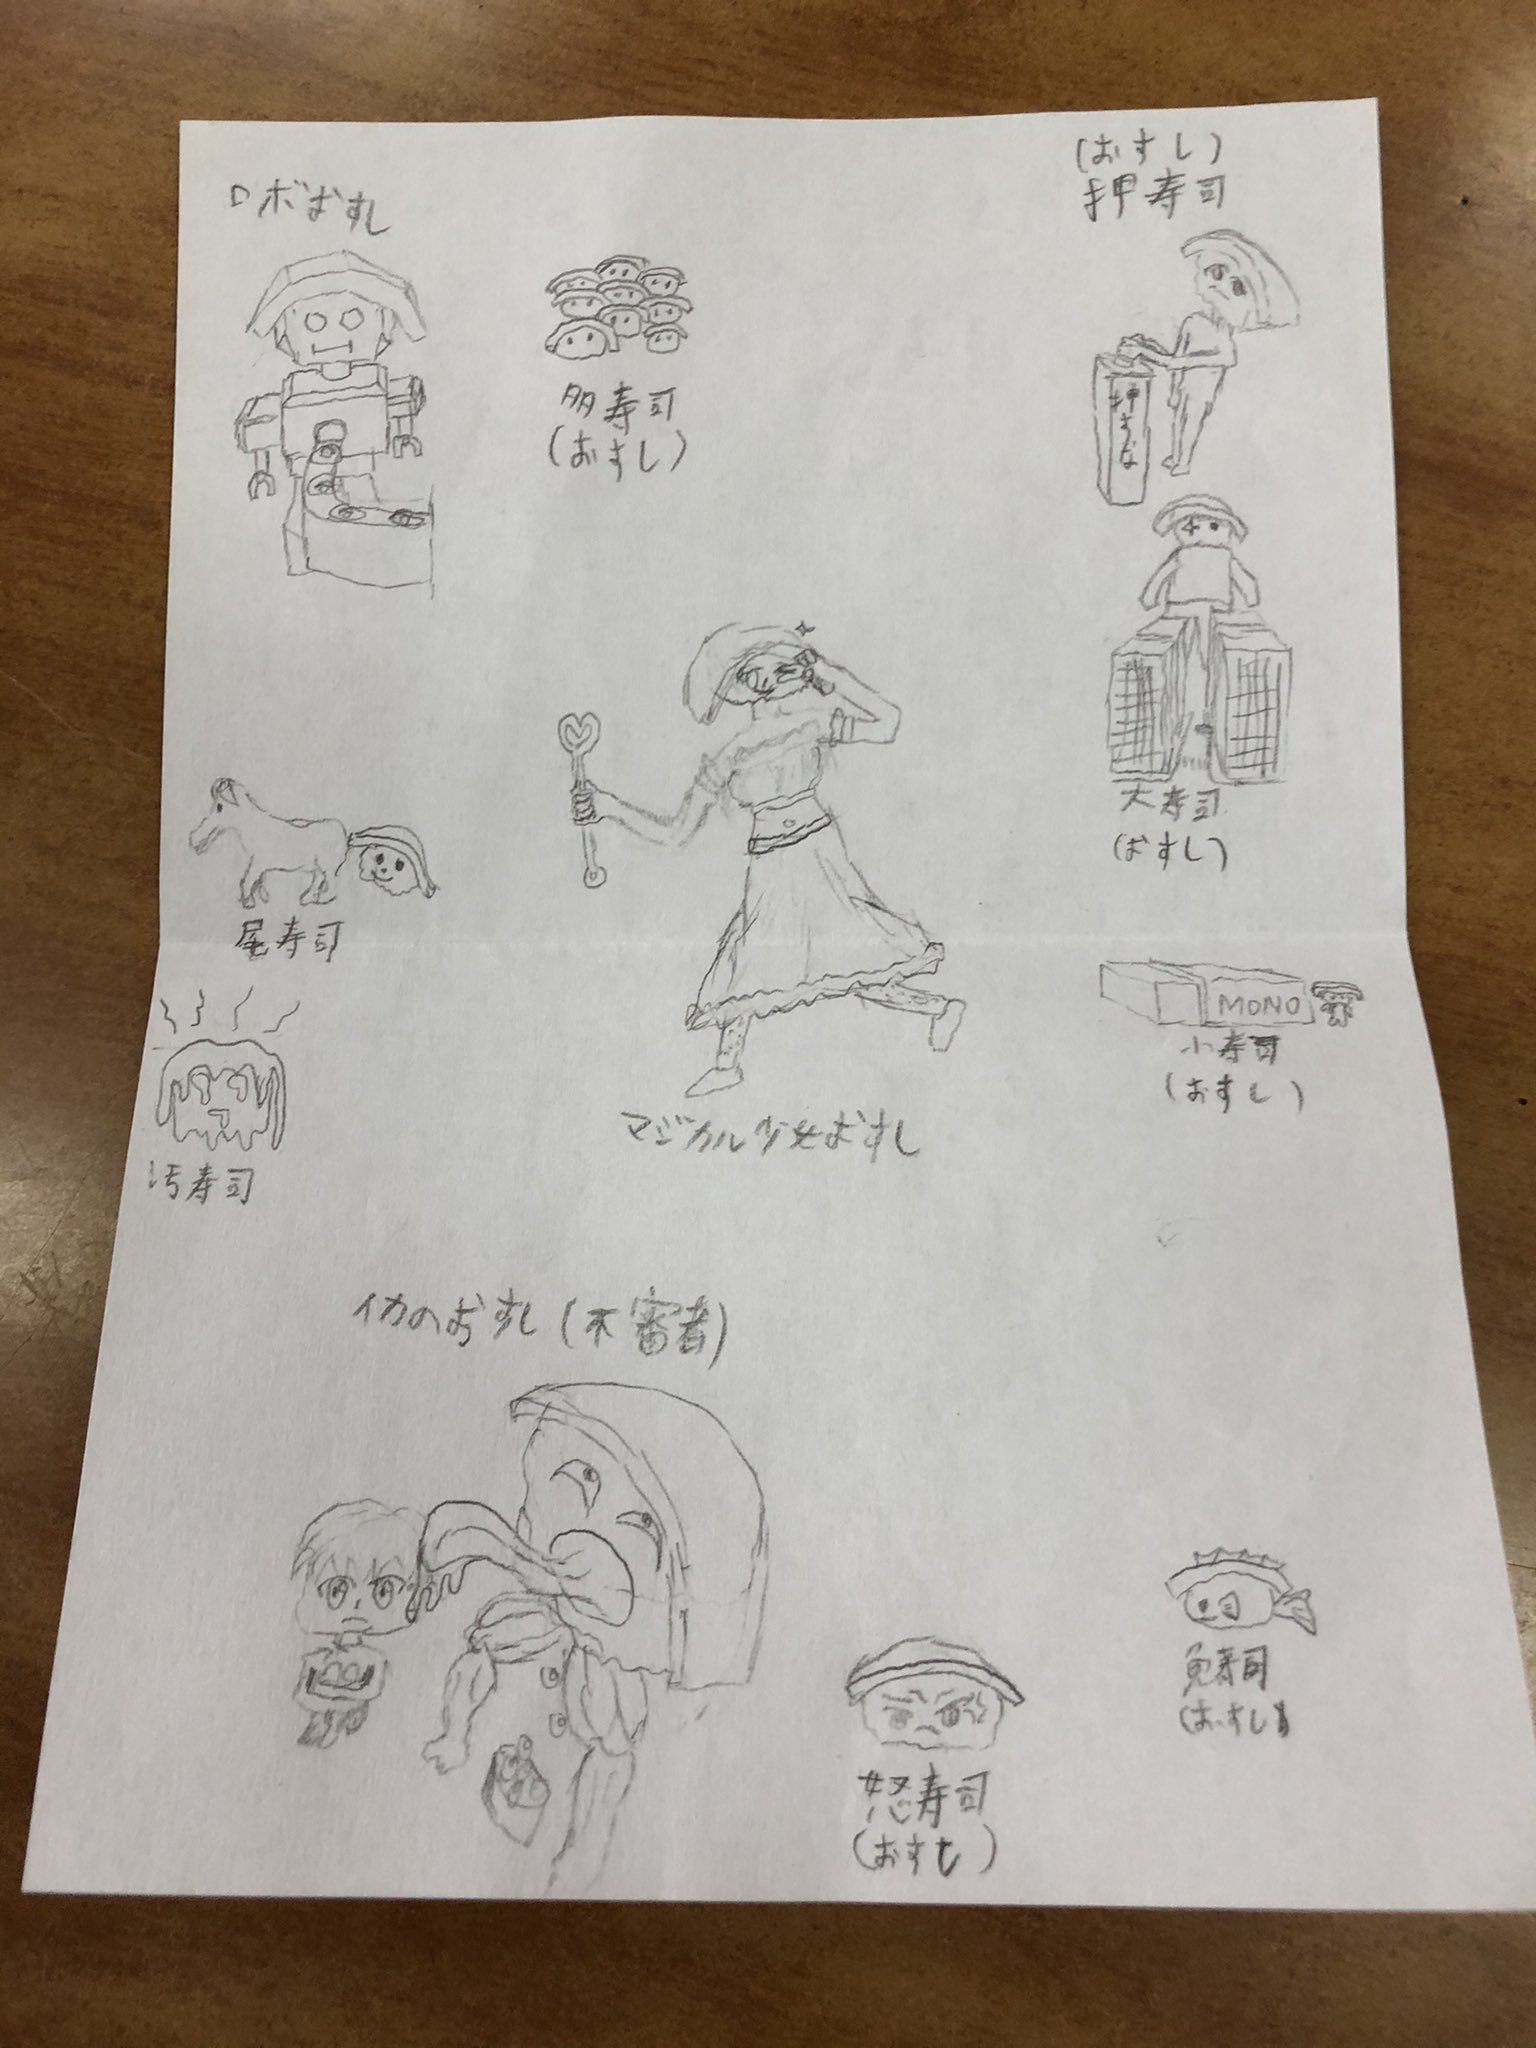 ロボおすし
(おすし)
押寿司
押すな
多寿司
(おすし)
大寿司
(おすし)
尾寿司
MONO
小寿司
(おすし)
マジカル少女おすし
汚寿司
イカのおすし(不審者)
怒寿司
(おすし)
魚寿司
(おすし)